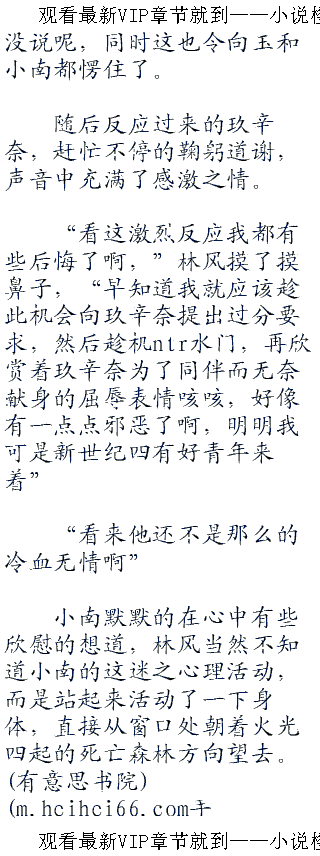 观看最新VIP章节就到——小说
没说呢，同时这也令向玉和
小南都愣住了。
随后反应过来的玖辛
奈，赶忙不停的鞠躬道谢，
声音中充满了感激之情。
“看这激烈反应我都有
些后悔了啊，”林风摸了摸
鼻子，“早知道我就应该趁
此机会向玖辛奈提出过分要
求，然后趁机ntr水门，再欣
赏着玖辛奈为了同伴而无奈
献身的屈辱表情咳咳，好像
有一点点邪恶了啊，明明我
可是新世纪四有好青年来
着”
“看来他还不是那么的
冷血无情啊”
小南默默的在心中有些
欣慰的想道，林风当然不知
道小南的这迷之心理活动，
而是站起来活动了一下身
体，直接从窗口处朝着火光
四起的死亡森林方向望去。
(有意思书院)
(m.hcihci66.com
观看最新VIP章节就到——小说